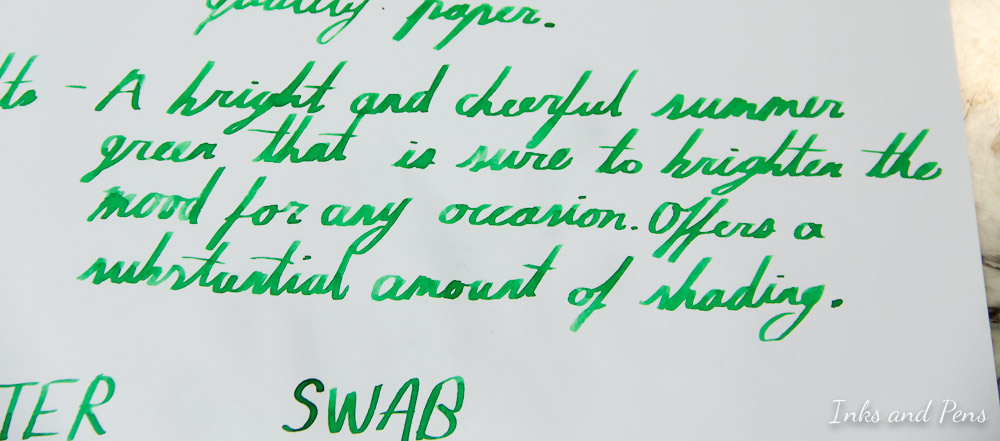 quality paper.
- A bright and cheerful summer
green that is sure to brighten the
mood for any occasion. Offers a
substantial amount of shading.
TER SWAB
Inks and Pens